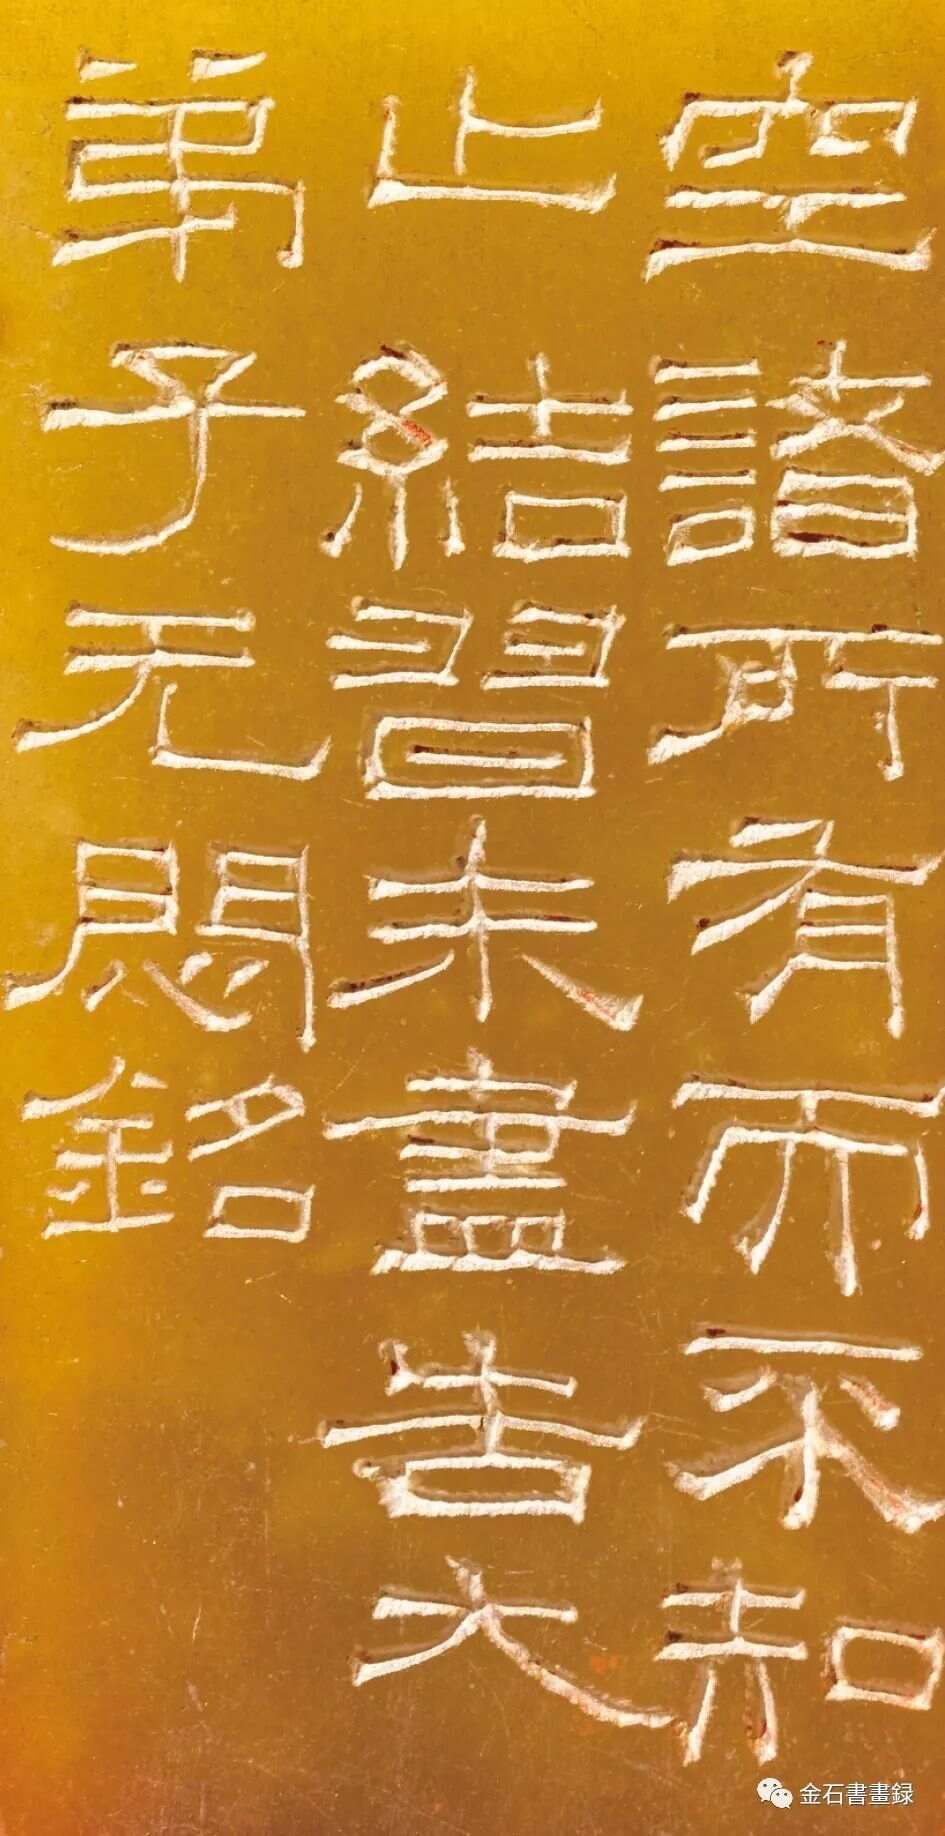 空諸所有而不知
止結習未盡告大
弟子无悶銘
金石書畫録